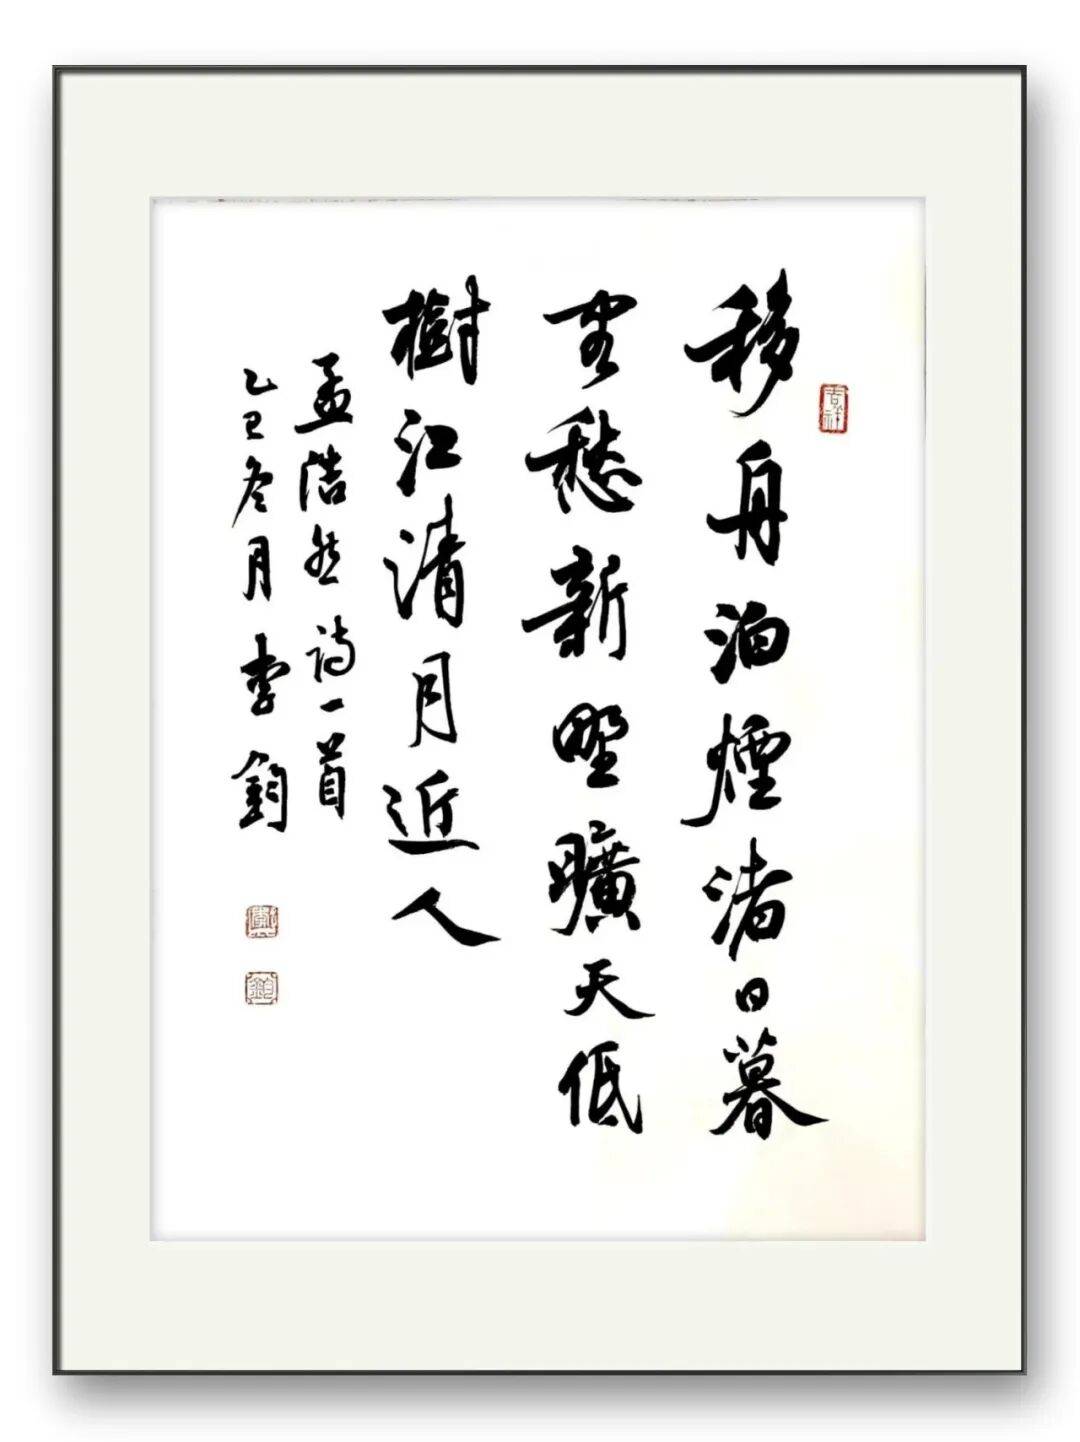 吉祥
移舟泊煙渚日暮
客愁新野曠天低
樹江清月近人
孟浩然诗一首
乙巳冬月李鈞
李
鈞